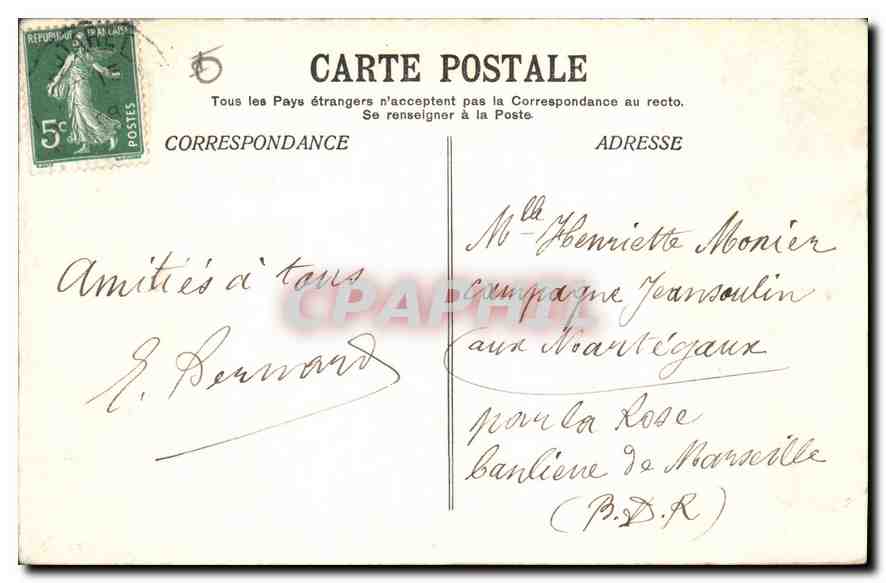 REPUBLIQUE FRANÇAISE
5c
POSTES
CARTE POSTALE
Tous les Pays étrangers n'acceptent pas la Correspondance au recto.
Se renseigner à la Poste.
CORRESPONDANCE
Amitiés à tous
E. Bernard
ADRESSE
Mlle Henriette Monier
campagne Jeansoulin
aux Martégaux
par la Rose
banlieue de Marseille
(B.D.R)
CPAPHIL